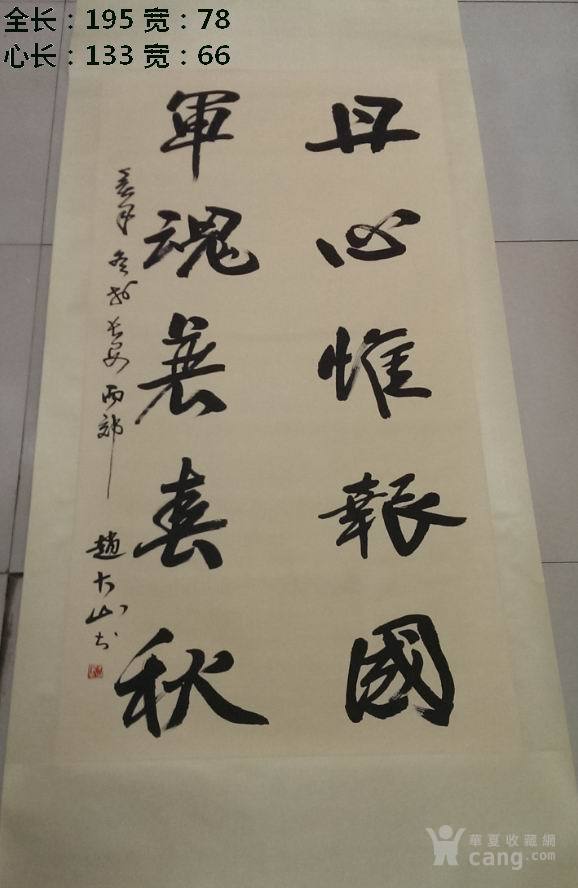 全长：195 宽：78
心长：133 宽：66
丹心惟報國
軍魂春秋
年冬於長安西郊
趙大山书
華夏收藏網
cang.com